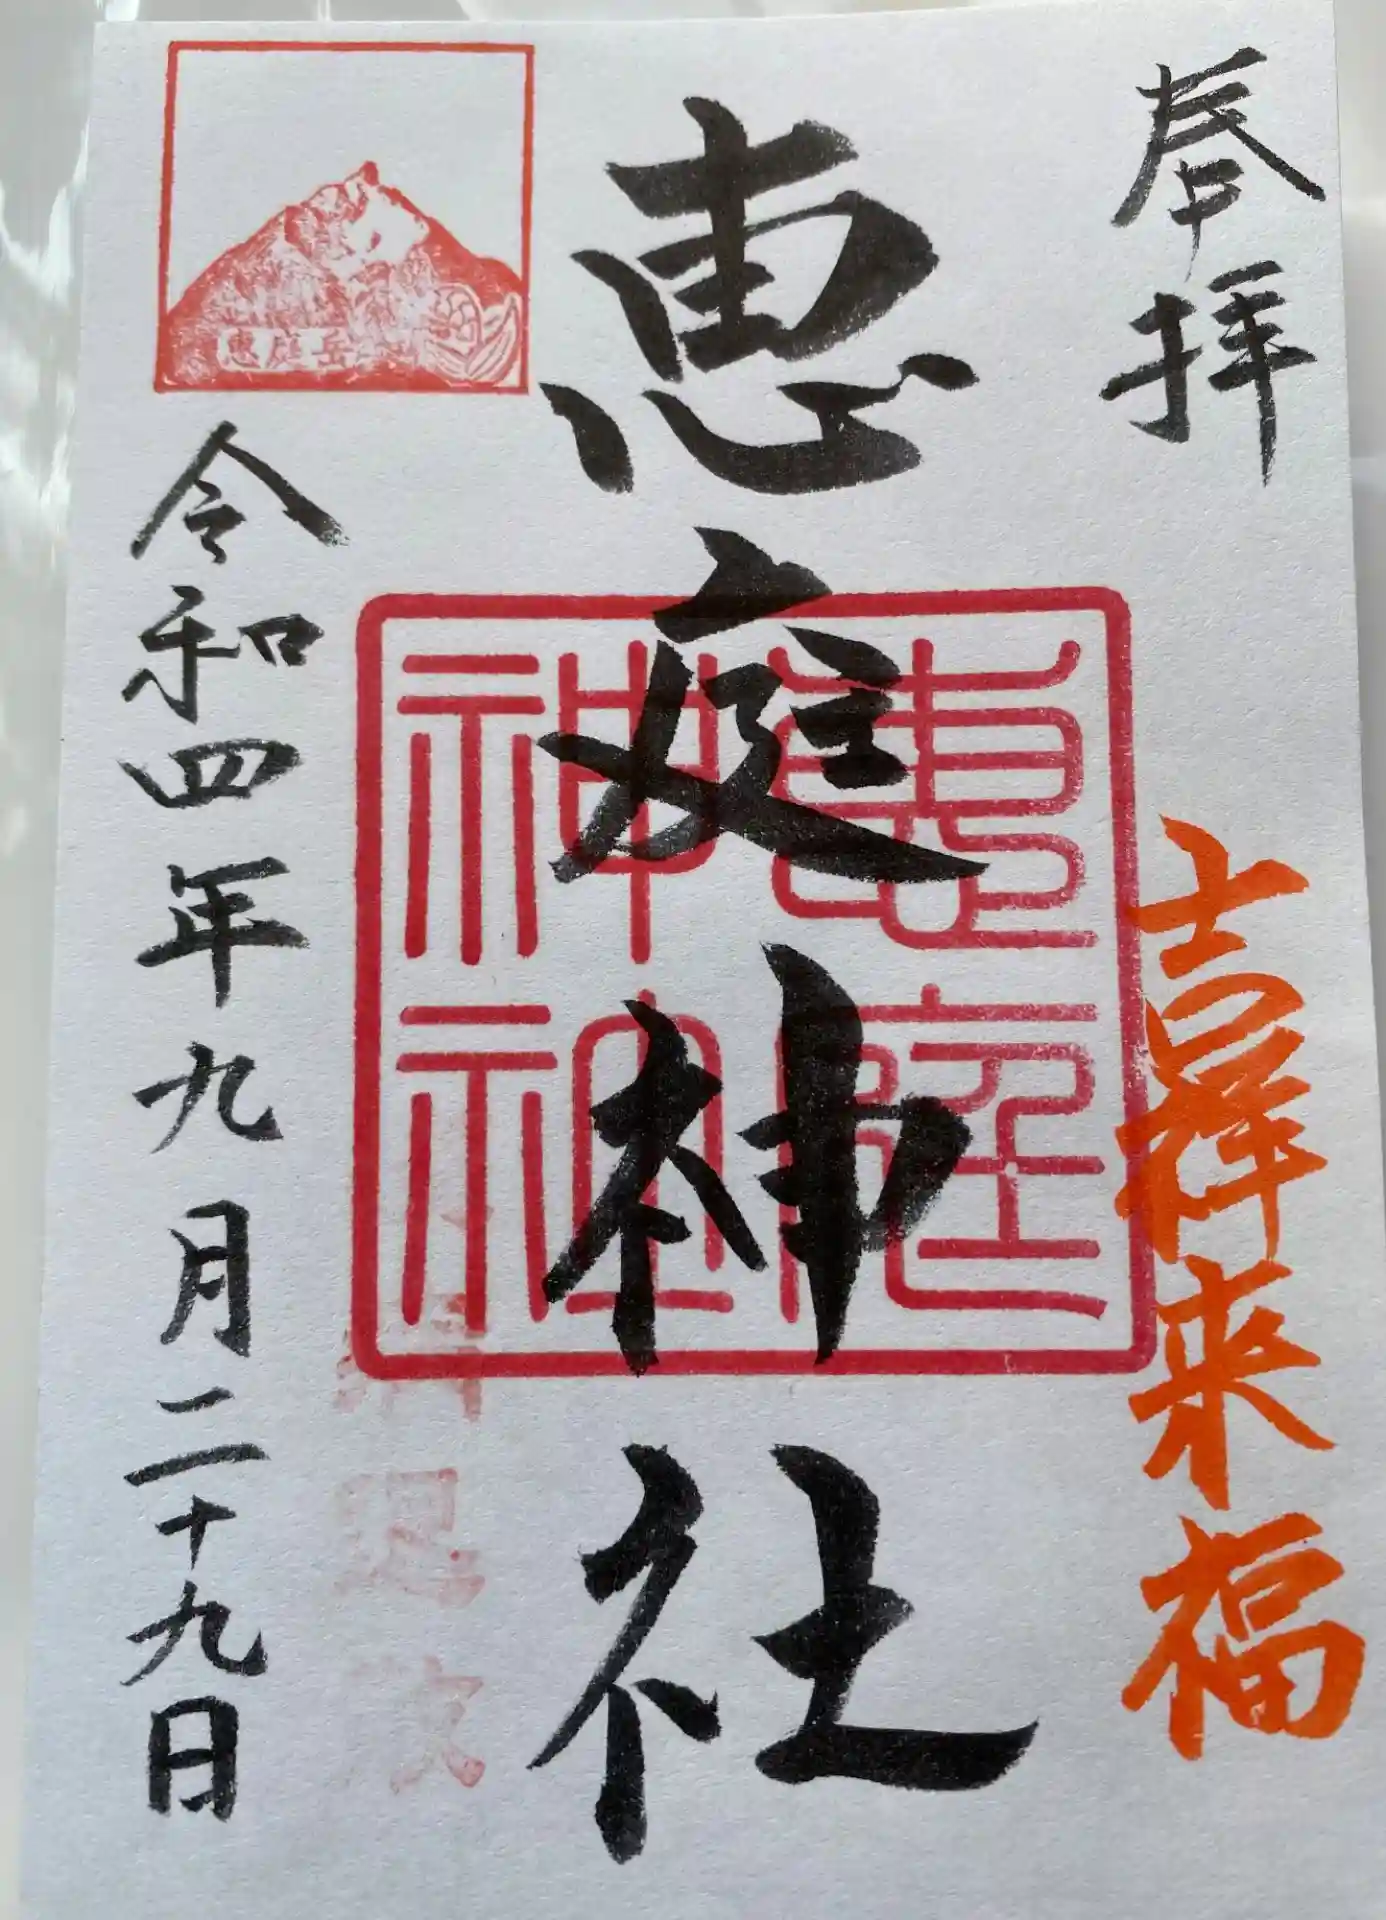 奉拝
吉祥来福
恵庭神社
恵庭
神社
恵庭岳
令和四年九月二十九日